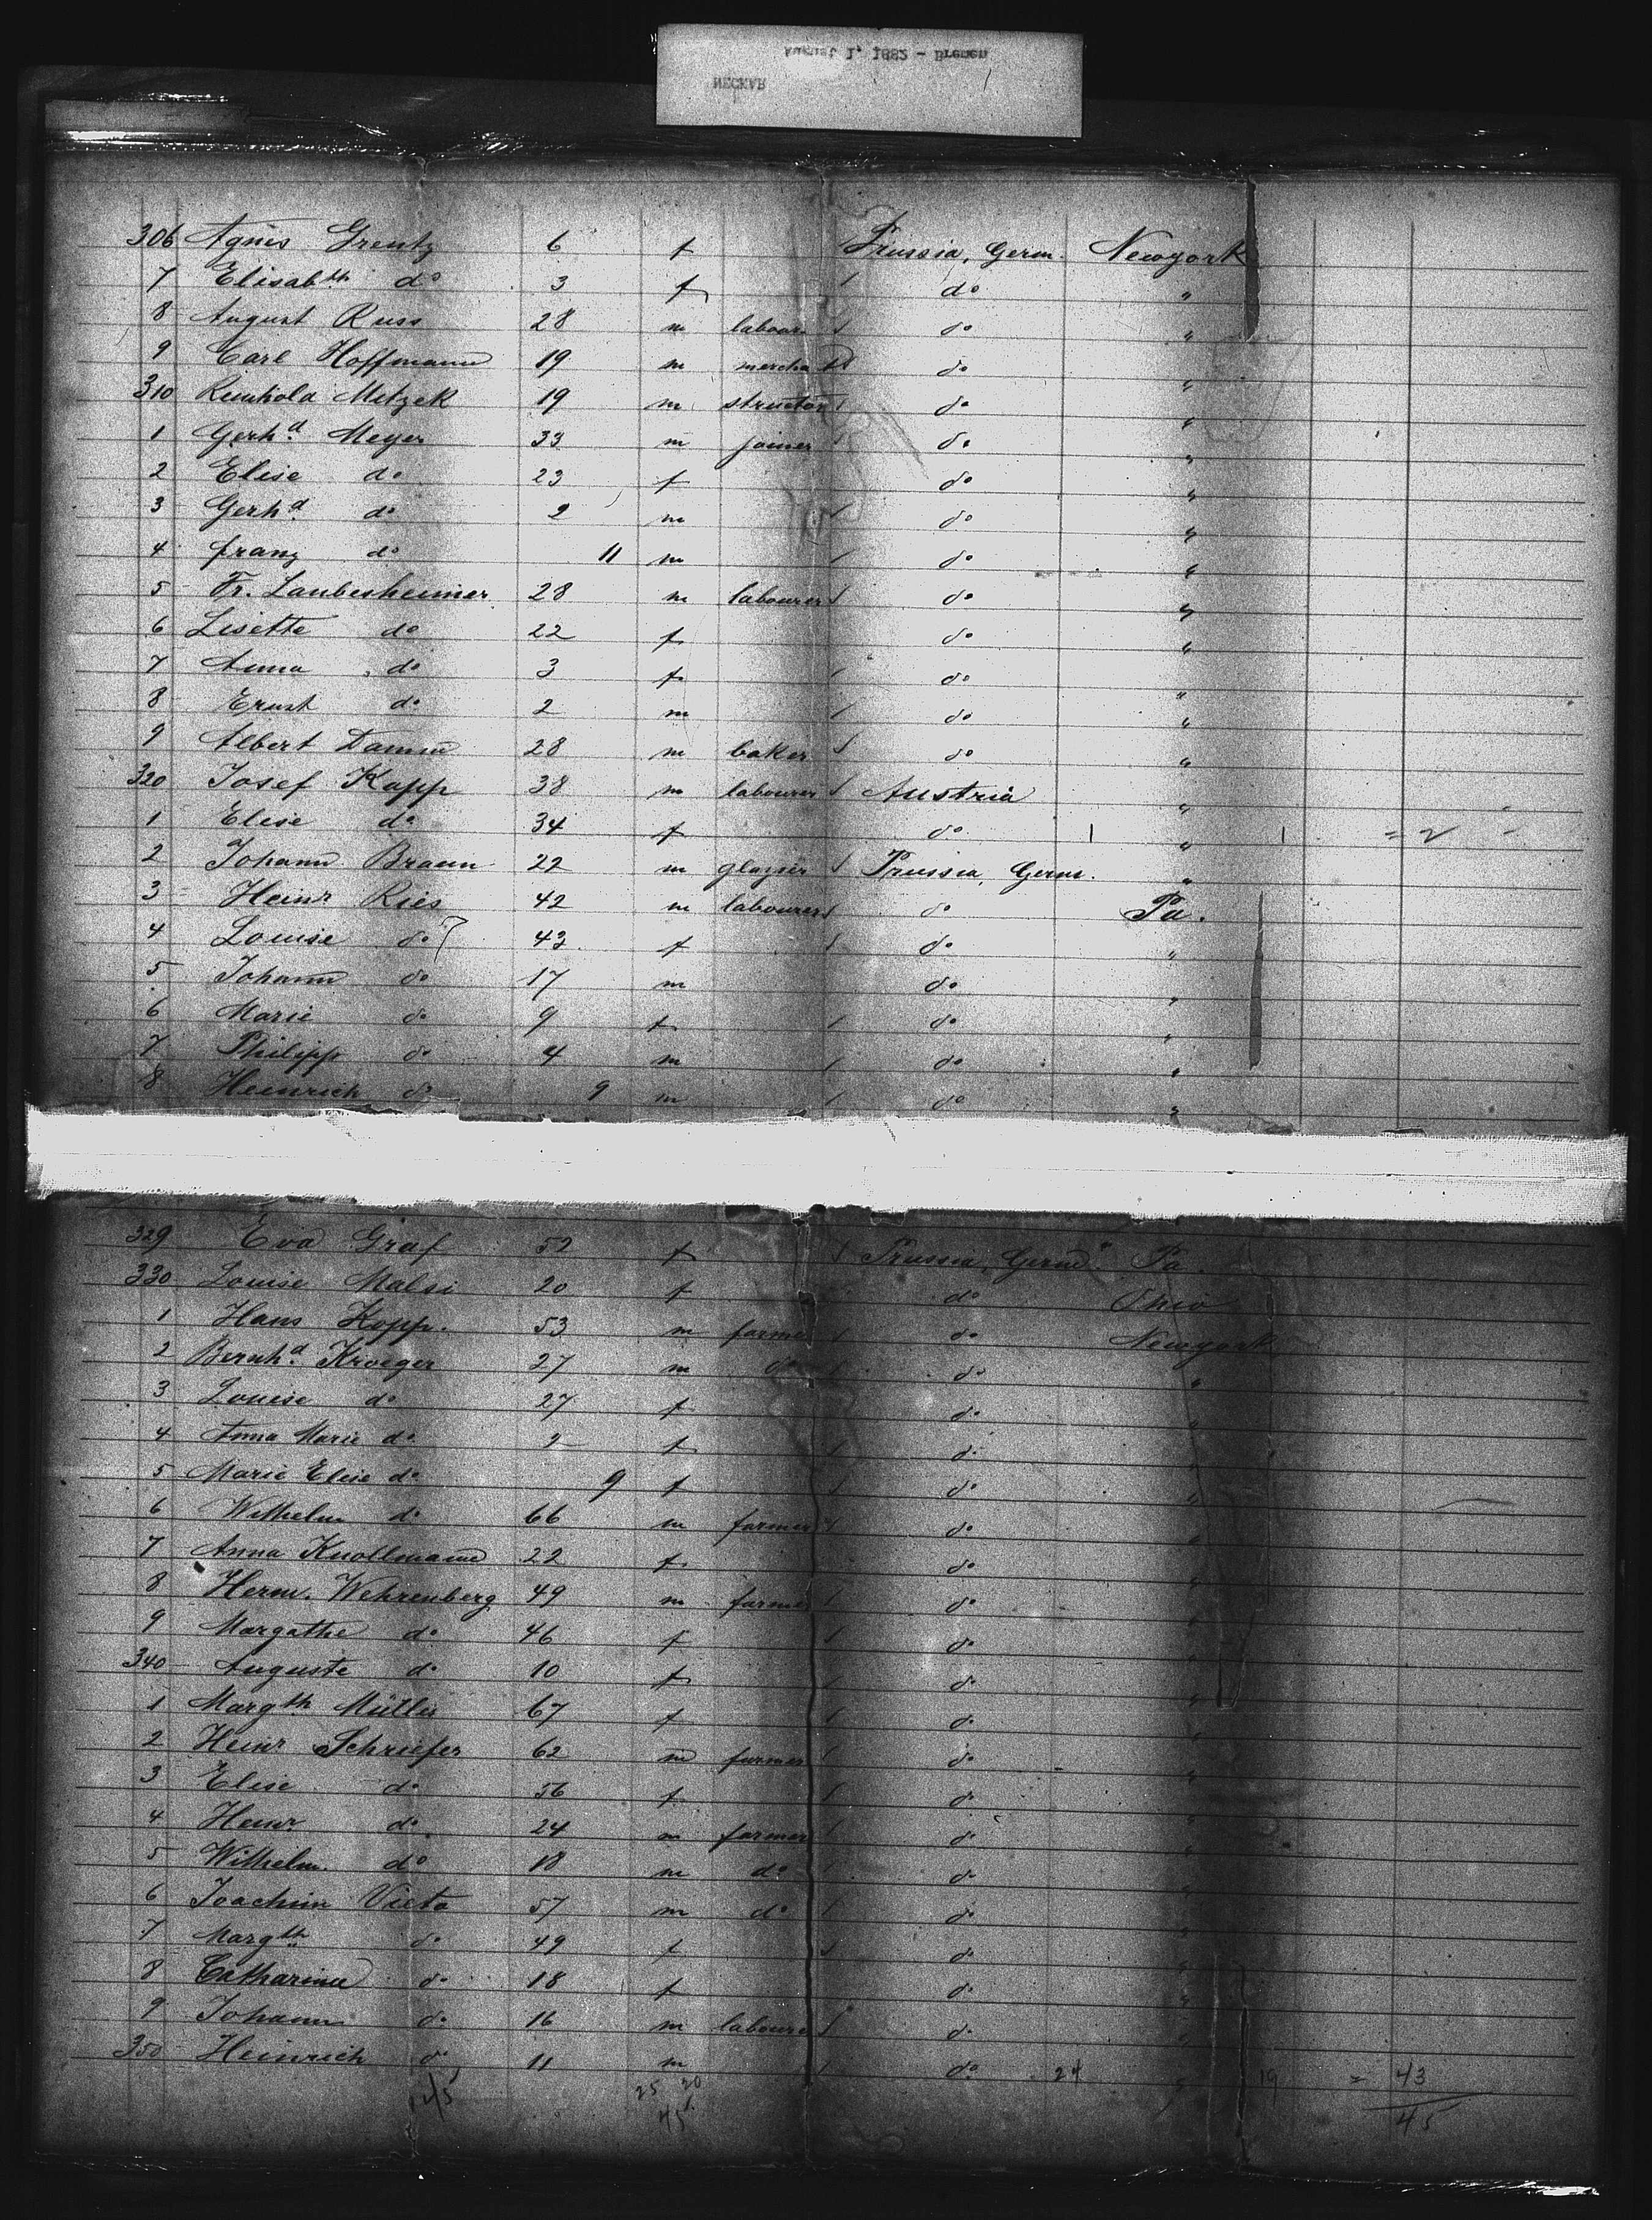 NECKAR
August 1, 1882 - Bremen
306 Agnes Grentz 6 f Prussia, Germ. Newyork
7 Elisabth do 3 f do "
8 August Russ 28 m labour do "
9 Carl Hoffmann 19 m merchant do "
310 Reinhold Metzek 19 m do "
1 Gerhd Meyer 33 m joiner do "
2 Elise do 23 f do "
3 Gerhd do 2 m do "
4 franz do 11 m do "
5 Fr. Laubesheimer 28 m labourer do "
6 Lisette do 22 f do "
7 Anna do 3 f do "
8 Ernst do 2 m do "
9 Albert Damm 28 m baker do "
320 Josef Kapp 38 m labourer Austria "
1 Elise do 34 f do 1 " 1 = 2
2 Johann Braun 22 m glazier Prussia, Germ. "
3 Heinr Ries 42 m labourer do Pa.
4 Louise do 43 f do "
5 Johann do 17 m do "
6 Marie do 9 f do "
7 Philipp do 4 m do "
8 Heinrich do 9 m do "
329 Eva Graf 52 f Prussia, Germ. Pa.
330 Louise Malsi 20 f do Ohio
1 Hans Kopp. 53 m farmer do Newyork
2 Bernhd Kroeger 27 m do do "
3 Louise do 27 f do "
4 Anna Marie do 2 f do "
5 Marie Elise do 9 f do "
6 Wilhelm do 66 m farmer do "
7 Anna Knollmann 22 f do "
8 Herm. Wehrenberg 49 m farmer do "
9 Margathe do 46 f do "
340 Auguste do 10 f do "
1 Margth Müller 67 f do "
2 Heinr Schriefer 62 m farmer do "
3 Elise do 56 f do "
4 Heinr do 24 m farmer do "
5 Wilhelm do 18 m do do "
6 Joachim Vieto 57 m do do "
7 Margth do 49 f do "
8 Catharina do 18 f do "
9 Johann do 16 m labourer do "
350 Heinrich do 11 m do 24 " 19 = 43
45 25 20 45
45